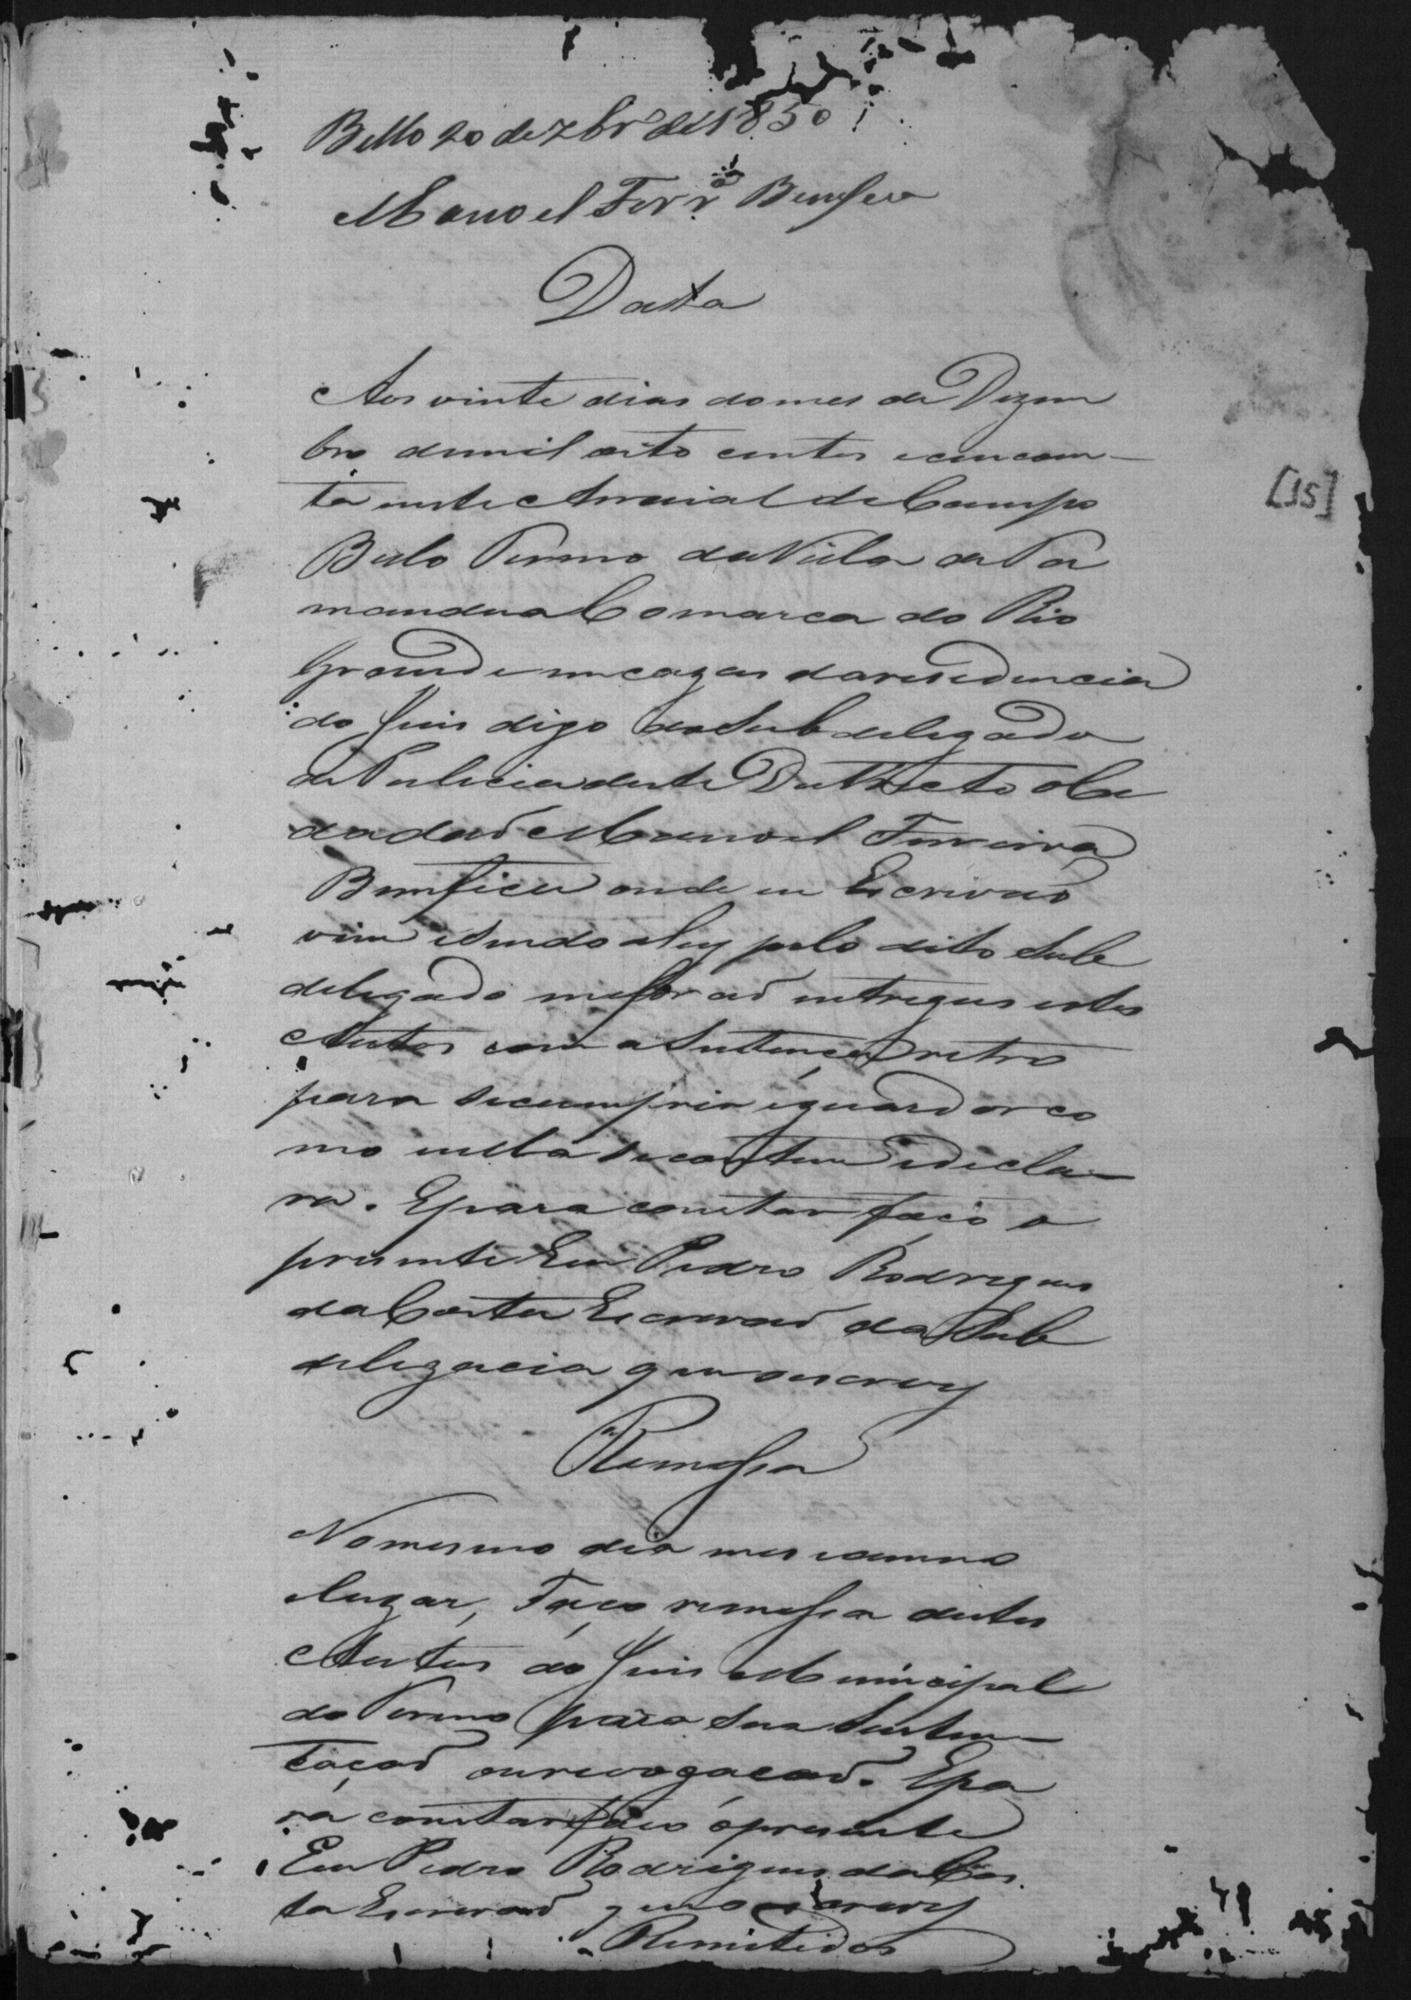 Bello 20 de Xbrº de 1850
Manoel Ferrª Bemfica
Datta
Aos vinte dias domes de Dizem
bro demil oito centos ecincoen-
ta neste Arraial de Campo
Bello Termo da Villa de Ta
mandua Comarca do Rio
Grande em cazas daresedencia
do Juis digo do Sub delegado
de Pulicia deste Destricto o Ci
dadaõ Manoel Ferreira
Bemfica onde eu Escrivaõ
vim esendo ahy pelo dito Sub
delegado meforaõ entregues estes
Autos com a Sentença retro
para secumprir eguardar co
mo nella secontem edecla-
ra. Epara constar faço o
presente Eu Pedro Rodrigues
da Costa Escrivaõ da Sub
delegacia que oescrevy
Remessa
Nomesmo dia mes eanno
Lugar, Faço remessa destes
Autos ao Juis Municipal
do Termo para Sua Susten-
taçaõ ourevogacaõ. Epa
ra constar faço opresente
Eu Pedro Rodrigues da Cos
ta Escrivaõ que oescrevy
Remitidos
[15]